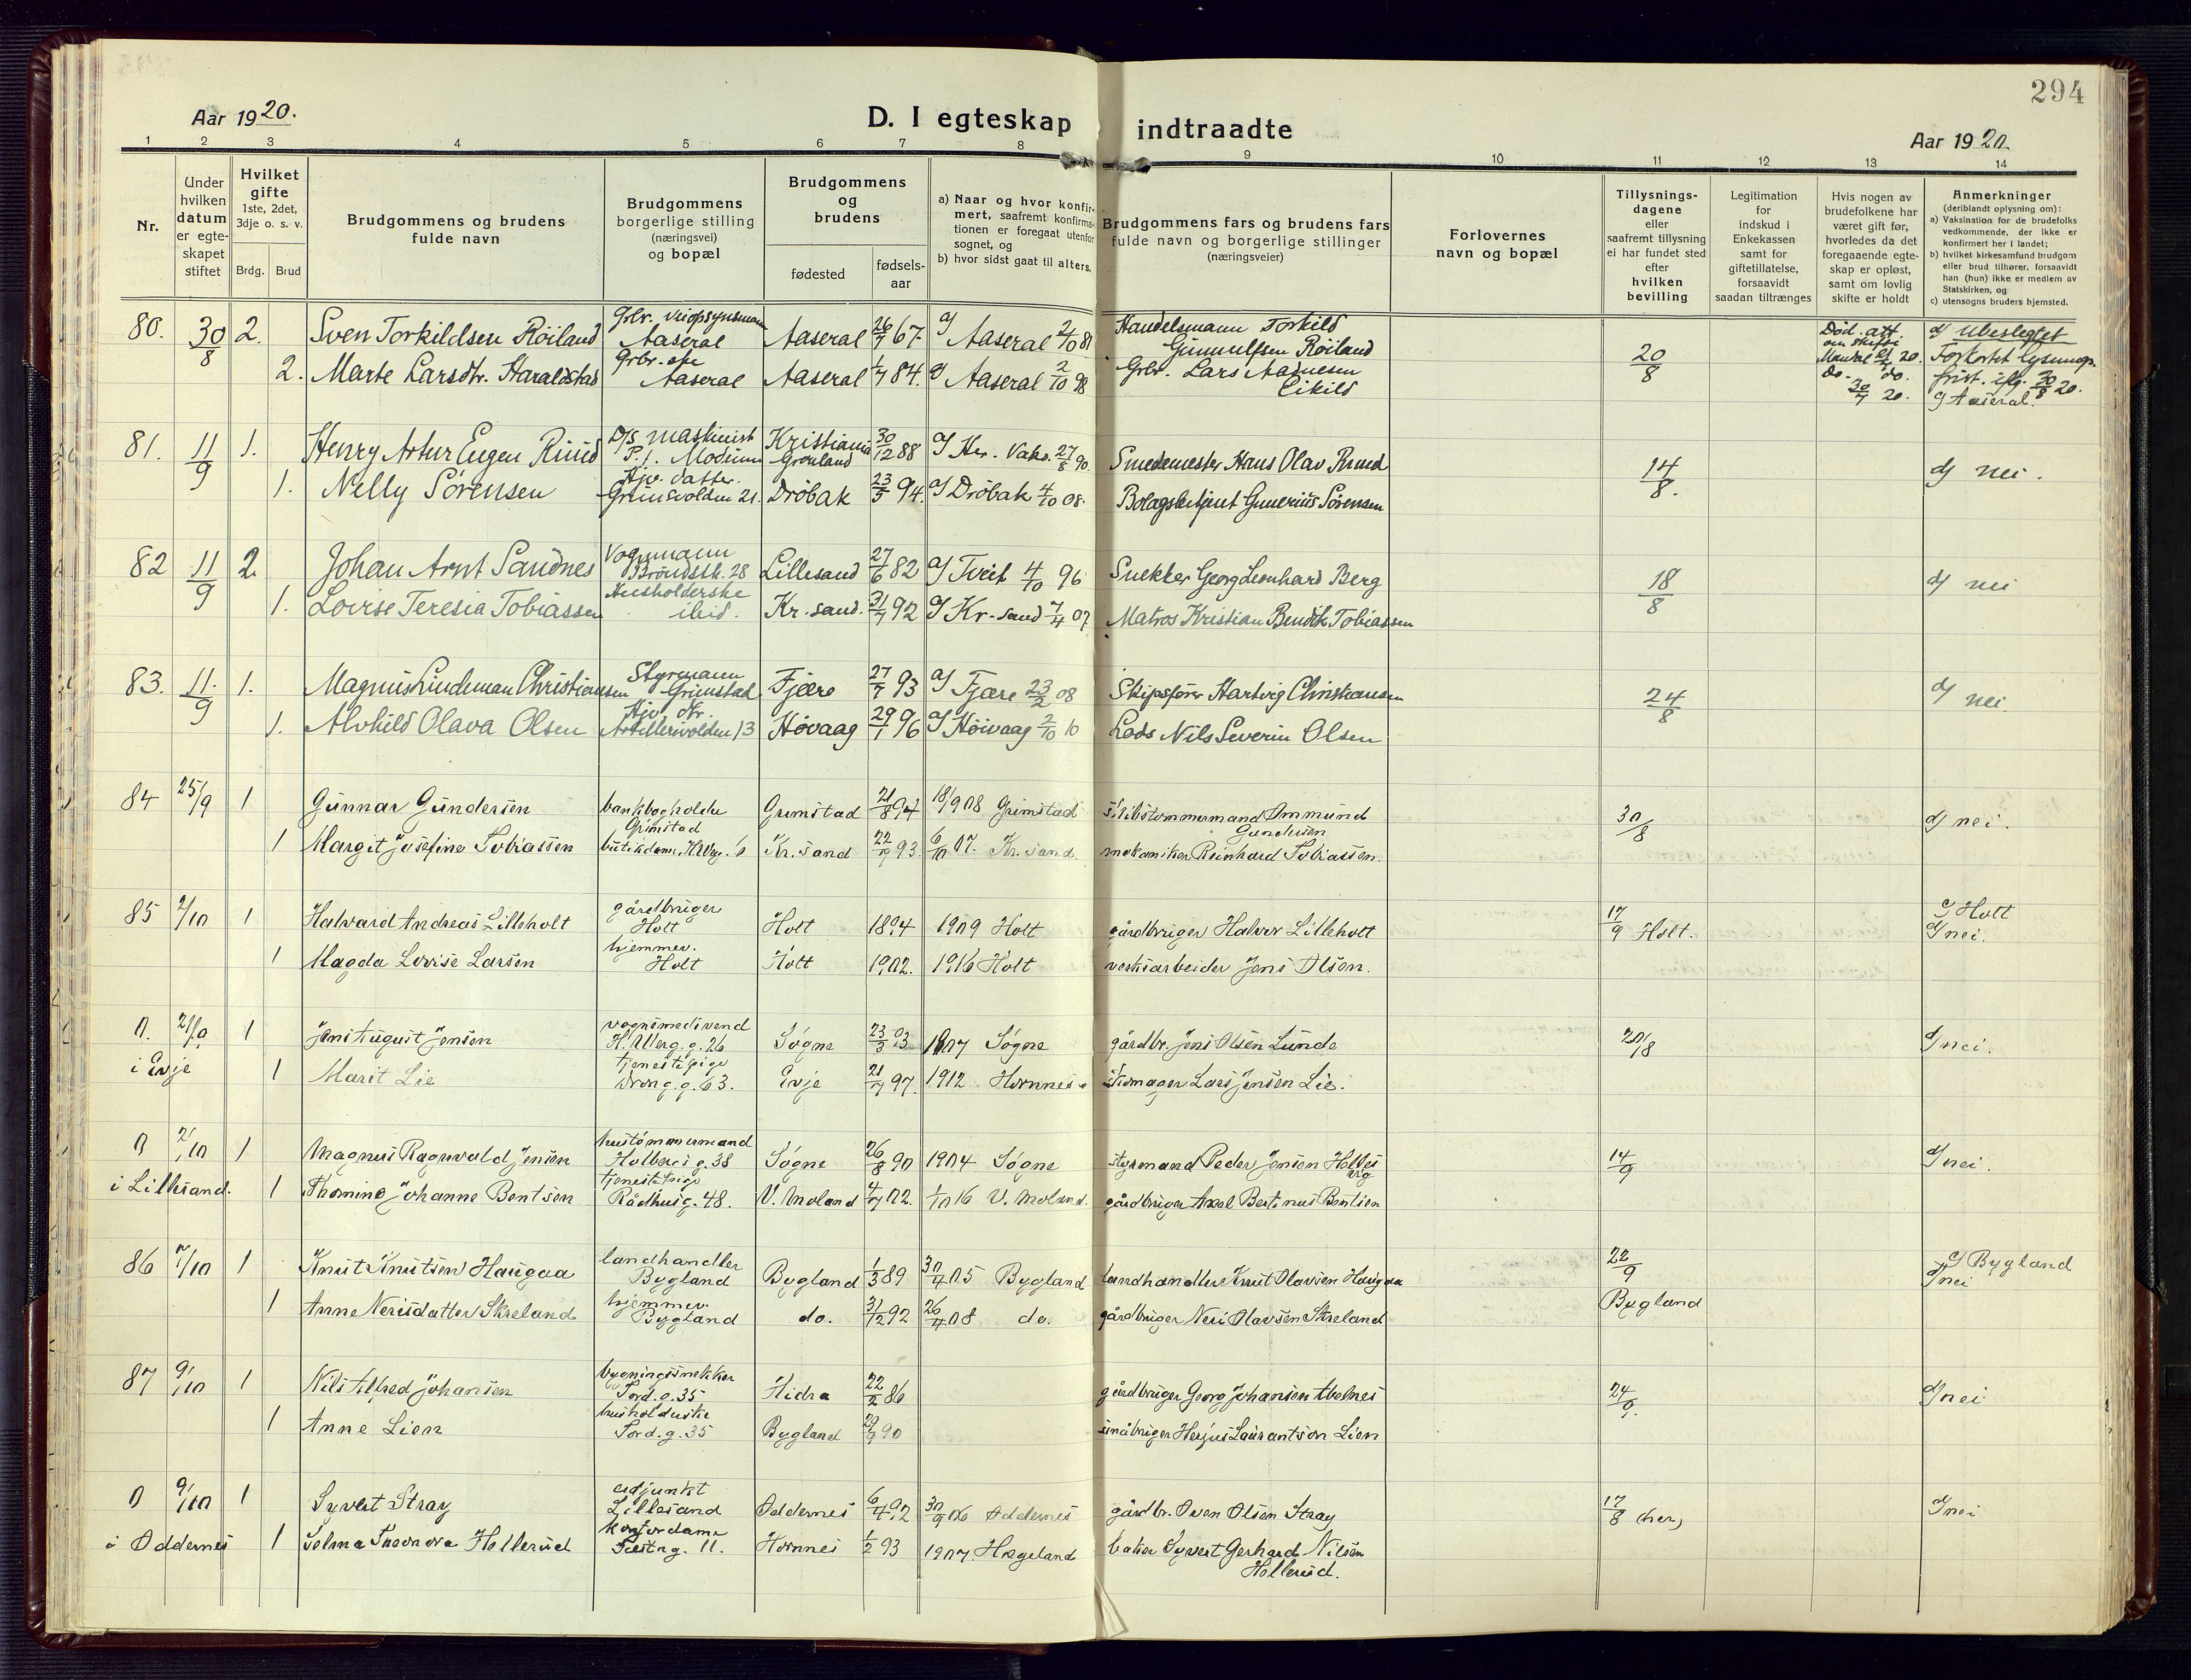 294
Aar 1920.
D. I egteskap indtraadte
Aar 1920.
1 2 3 4 5 6 7 8 9 10 11 12 13 14
Nr.
Under hvilken datum er egteskapet stiftet
Hvilket gifte
1ste, 2det, 3dje o. s. v.
Brdg. Brud
Brudgommens og brudens fulde navn
Brudgommens borgerlige stilling (næringsvei) og bopæl
Brudgommens og brudens
fødested
fødselsaar
a) Naar og hvor konfirmert, saafremt konfirmationen er foregaat utenfor sognet, og
b) hvor sidst gaat til alters.
Brudgommens fars og brudens fars fulde navn og borgerlige stillinger (næringsveier)
Forlovernes navn og bopæl
Tillysningsdagene eller saafremt tillysning ei har fundet sted efter hvilken bevilling
Legitimation for indskud i Enkekassen samt for giftetillatelse, forsaavidt saadan tiltrænges
Hvis nogen av brudefolkene har været gift før, hvorledes da det foregaaende egteskap er opløst, samt om lovlig skifte er holdt
Anmerkninger
(deriblandt oplysning om):
a) Vaksination for de brudefolks vedkommende, der ikke er konfirmert her i landet;
b) hvilket kirkesamfund brudgom eller brud tilhører, forsaavidt han (hun) ikke er medlem av Statskirken, og
c) utensogns bruders hjemsted.
80. 30/8 2. Sven Torkildsen Röiland Aaseral Aaseral 26/7 67 a) Aaseral 2/10 81 Handelsmann Torkild Gunnulfsen Röiland 20/8 d) Ubeslegtet
2. Marte Larsdtr. Haraldstad Grbr. Aaseral Aaseral 1/7 84. a) Aaseral 2/10 98 Grbr. Lars Eikild do. do. 30/7 20. frist. 30/8 20.
c) Aaseral.
81. 11/9 1. Henry Artur Eugen Ruud D/S maskinist Modum Kristiania Grønland 30/12 88 27/8 90 Smedemester Hans Olav Ruud 14/8. d) nei.
1. Nelly Sörensen Hjv. datter. 21. Dröbak 23/5 94. a) Dröbak 4/10 08. Gunerius Sörensen
82 11/9 2. Johan Arnt Sandnes Vognmann 28 Lillesand 27/6 82 a) Tveit 4/10 96 Snekker Georg Leonhard Berg 18/8 d) nei
1. Lovise Teresia Tobiassen Husholderske ibid. Kr.sand. 31/7 92 a) Kr.sand 7/4 07 Matros Kristian Bendik Tobiassen
83. 11/9 1. Magnus Lindeman Christiansen Styrmann Grimstad Fjære 27/7 93 a) Fjære 23/2 08 Skipsfører Hartvig Christiansen 24/8 d) nei.
1. Alvhild Olava Olsen Artillerivolden 13 Høvaag 29/1 96 a) Höivaag 2/10 10 Lods Nils Severin Olsen
84 25/9 1 Gunnar Gundersen bankbogholder Grimstad Grimstad 21/8 94 18/9 08 Grimstad skibstømmermand Ommund Gundersen 30/8 d) nei.
1 Margit Josefine Tobiassen Kr.sand 93 6/10 07. Kr.sand. mekaniker Reinhard Tobiassen.
85 2/10 1 Halvard Andreas Lilleholt gårdbruger Holt Holt 1894 1909 Holt gårdbruger Halvor Lilleholt 17/9 Holt. c) Holt
d) nei.
1 Magda Lovise Larsen hjemmev. Holt Holt 1902. 1916 Holt verksarbeider Jens Olsen.
0. 21/9 1 Jens August Jensen 26 Søgne 23/3 93 1907 Søgne gårdbr. Jens Olsen Lunde 20/8 d) nei.
i Evje 1 Marit Lie tjenestepige Dron.g.g. 63. Evje 21/7 97. 1912 Hornnes skomager Lars Jensen Lie.
0 2/10 1 Magnus Ragnvald Jensen hustømmermand Holbergs g. 38 Søgne 26/8 90 1904 Søgne styrmand Peder Jensen 14/9 d) nei.
i Lillesand. 1 Thomine Johanne Bentsen tjenestepige Rådhusg. 48. V. Moland 4/7 02. 1/10 16 V. Moland. gårdbruger Axel Bertinus Bentsen
86 2/10 1 Knut Knutsen Haugaa landhandler Bygland Bygland 1/3 89 30/4 05 Bygland landhandler Knut Olavsen Haugaa 22/9 Bygland c) Bygland
d) nei
1 Anne Nerisdatter Skreland hjemmev. Bygland do. 31/12 92 26/4 08 do. gårdbruger Neri Olavsen Skreland
87 9/10 1 Nils Alfred Johansen bygningssnekker Tord.g. 35 Hidra 22/2 86 gårdbruger Georg Johansen Abelnes 24/9. d) nei
1 Anne Lien Tord.g. 35 Bygland 29/9 90 småbruger Laurantson Lien
0 9/10 1 Syvert Stray adjunkt Lillesand Oddernes 6/4 92 30/9 06 Oddernes gårdbr. Oven Olsen Stray 17/8 (her) d) nei
i Oddernes 1 Selma Hellerud kontordame Festn.g. 11. Hornnes 1/2 93 1907. Hægeland baker Syvert Gerhard Nilsen Hellerud.